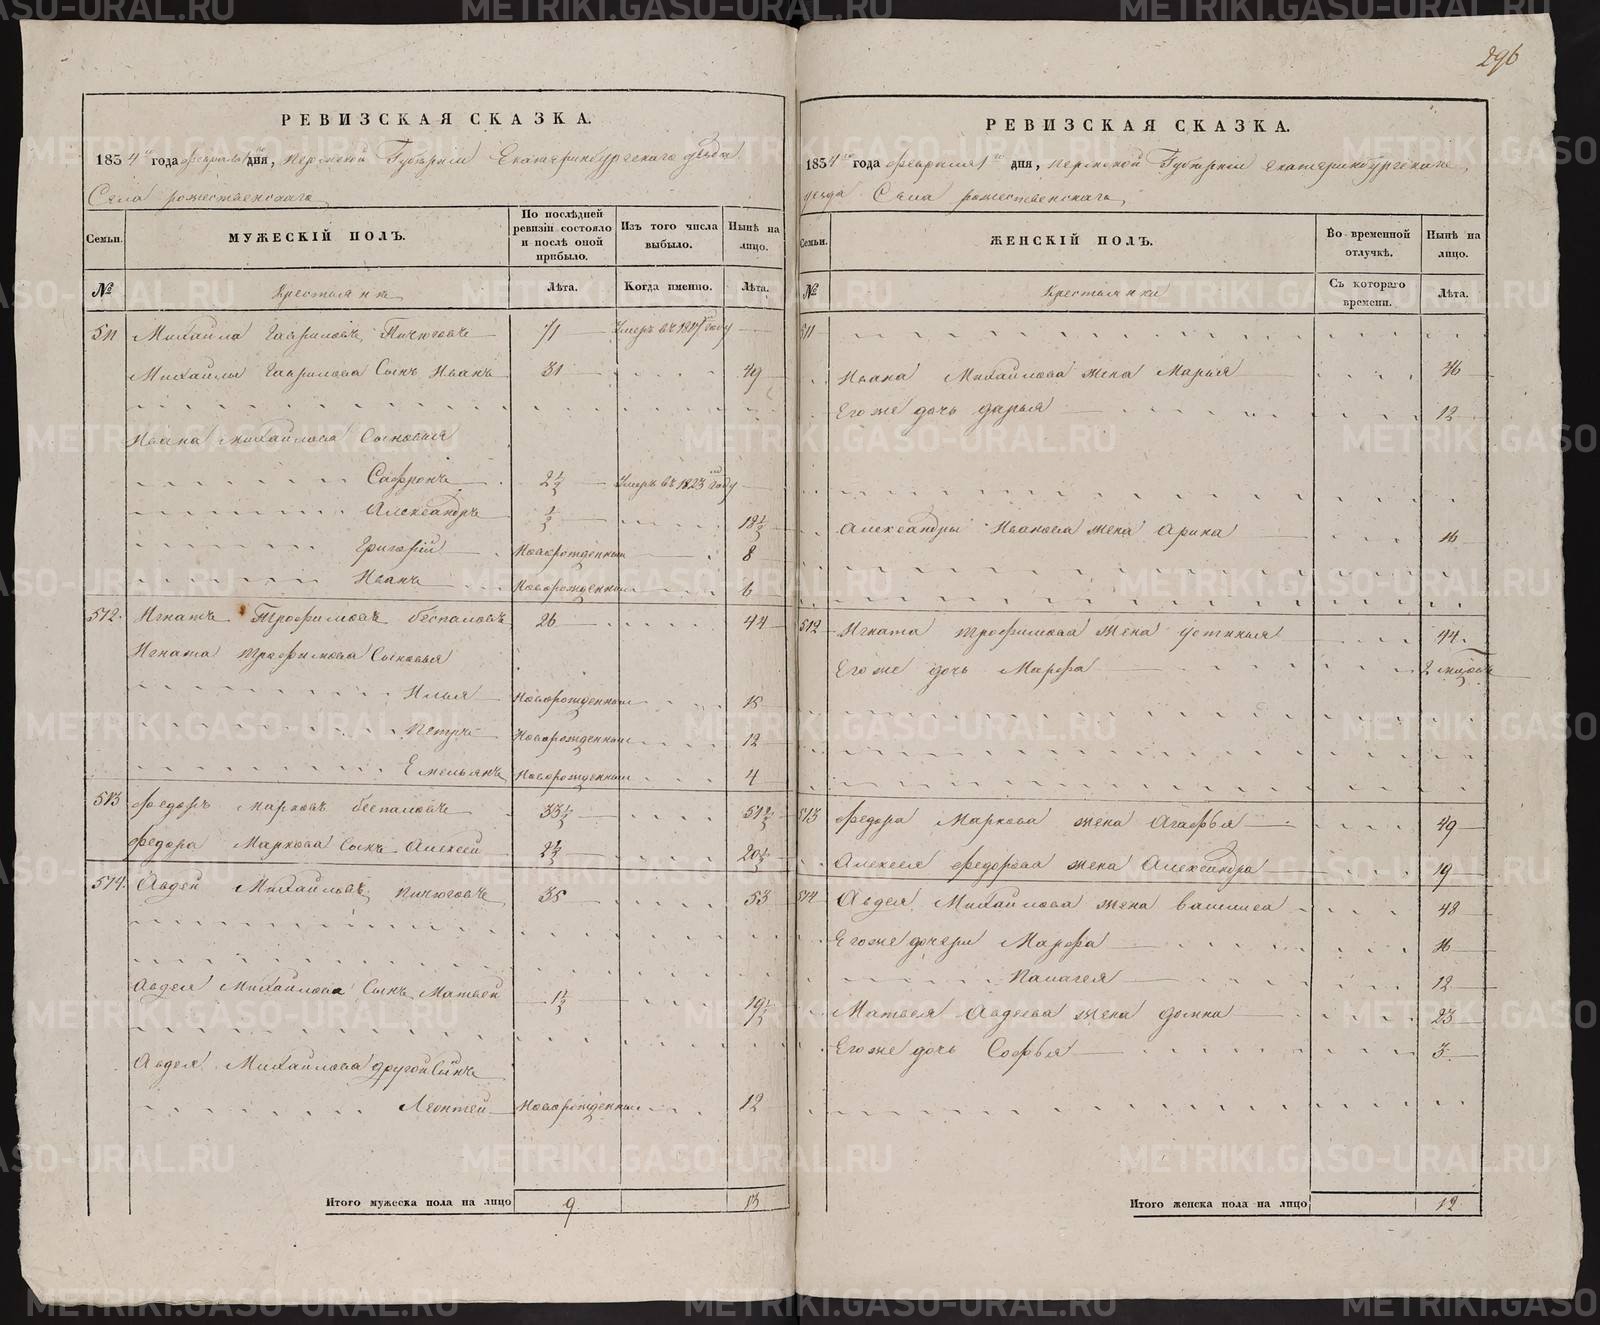 296
РЕВИЗСКАЯ СКАЗКА.
1834 го года февраля 1 го дня, пермской Губернии Екатеринбургскаго уезда
Села рожественскаго
Семьи.
МУЖЕСКІЙ ПОЛЪ.
По послѣдней ревизіи состояло и послѣ оной прибыло.
Изъ того числа выбыло.
Нынѣ на лицо.
№
Крестьянѣ
Лѣта.
Когда именно.
Лѣта.
511 Михайла Гавриловъ Пичюговъ 71 Умеръ въ 1817 году
Михайлы Гаврилова Сынъ Иванъ 31 49
Ивана Михайлова Сыновья
Софронъ 2 1/2 Умеръ въ 1823 году
Александръ 1/2 18 1/2
Григорій Новорожденный 8
Иванъ Новорожденный 6
512. Игнатъ Трофимовъ беспаловъ 26 44
Игната Трофимова Сыновья
Илья Новорожденный 15
Петръ Новорожденный 12
Емельянъ Новорожденный 4
513 Федоръ Марковъ беспаловъ 33 1/2 51 1/2
Федора Маркова Сынъ Алексей 2 1/2 20 1/2
514. Авдей Михайловъ пичюговъ 35 53
Авдея Михайлова Сынъ Матвей 1 1/2 19 1/2
Авдея Михайлова другой Сынъ
Леонтей Новорожденный 12
Итого мужеска пола на лицо 9 13
РЕВИЗСКАЯ СКАЗКА.
1834 го года февраля 1 го дня, пермской Губернии Екатеринбургскаго
уезда Села рожественскаго
Семьи.
ЖЕНСКІЙ ПОЛЪ.
Во временной отлучкѣ.
Нынѣ на лицо.
№
Крестьянки
Съ котораго времени.
Лѣта.
511
Ивана Михайлова жена Марья 46
Егоже дочь дарья 12
Александры Иванова жена Арина 16
512 Игната трофимова жена устинья 44.
Егоже дочь Марфа 2
513 Федора Маркова жена Агафья 49
Алексея Федорова жена Александра 19
514 Авдея Михайлова жена василиса 48
Егоже дочери Марфа 16
Палагея 12
Матвея Авдеева жена домна 23
Егоже дочь Софья 3
Итого женска пола на лицо 12